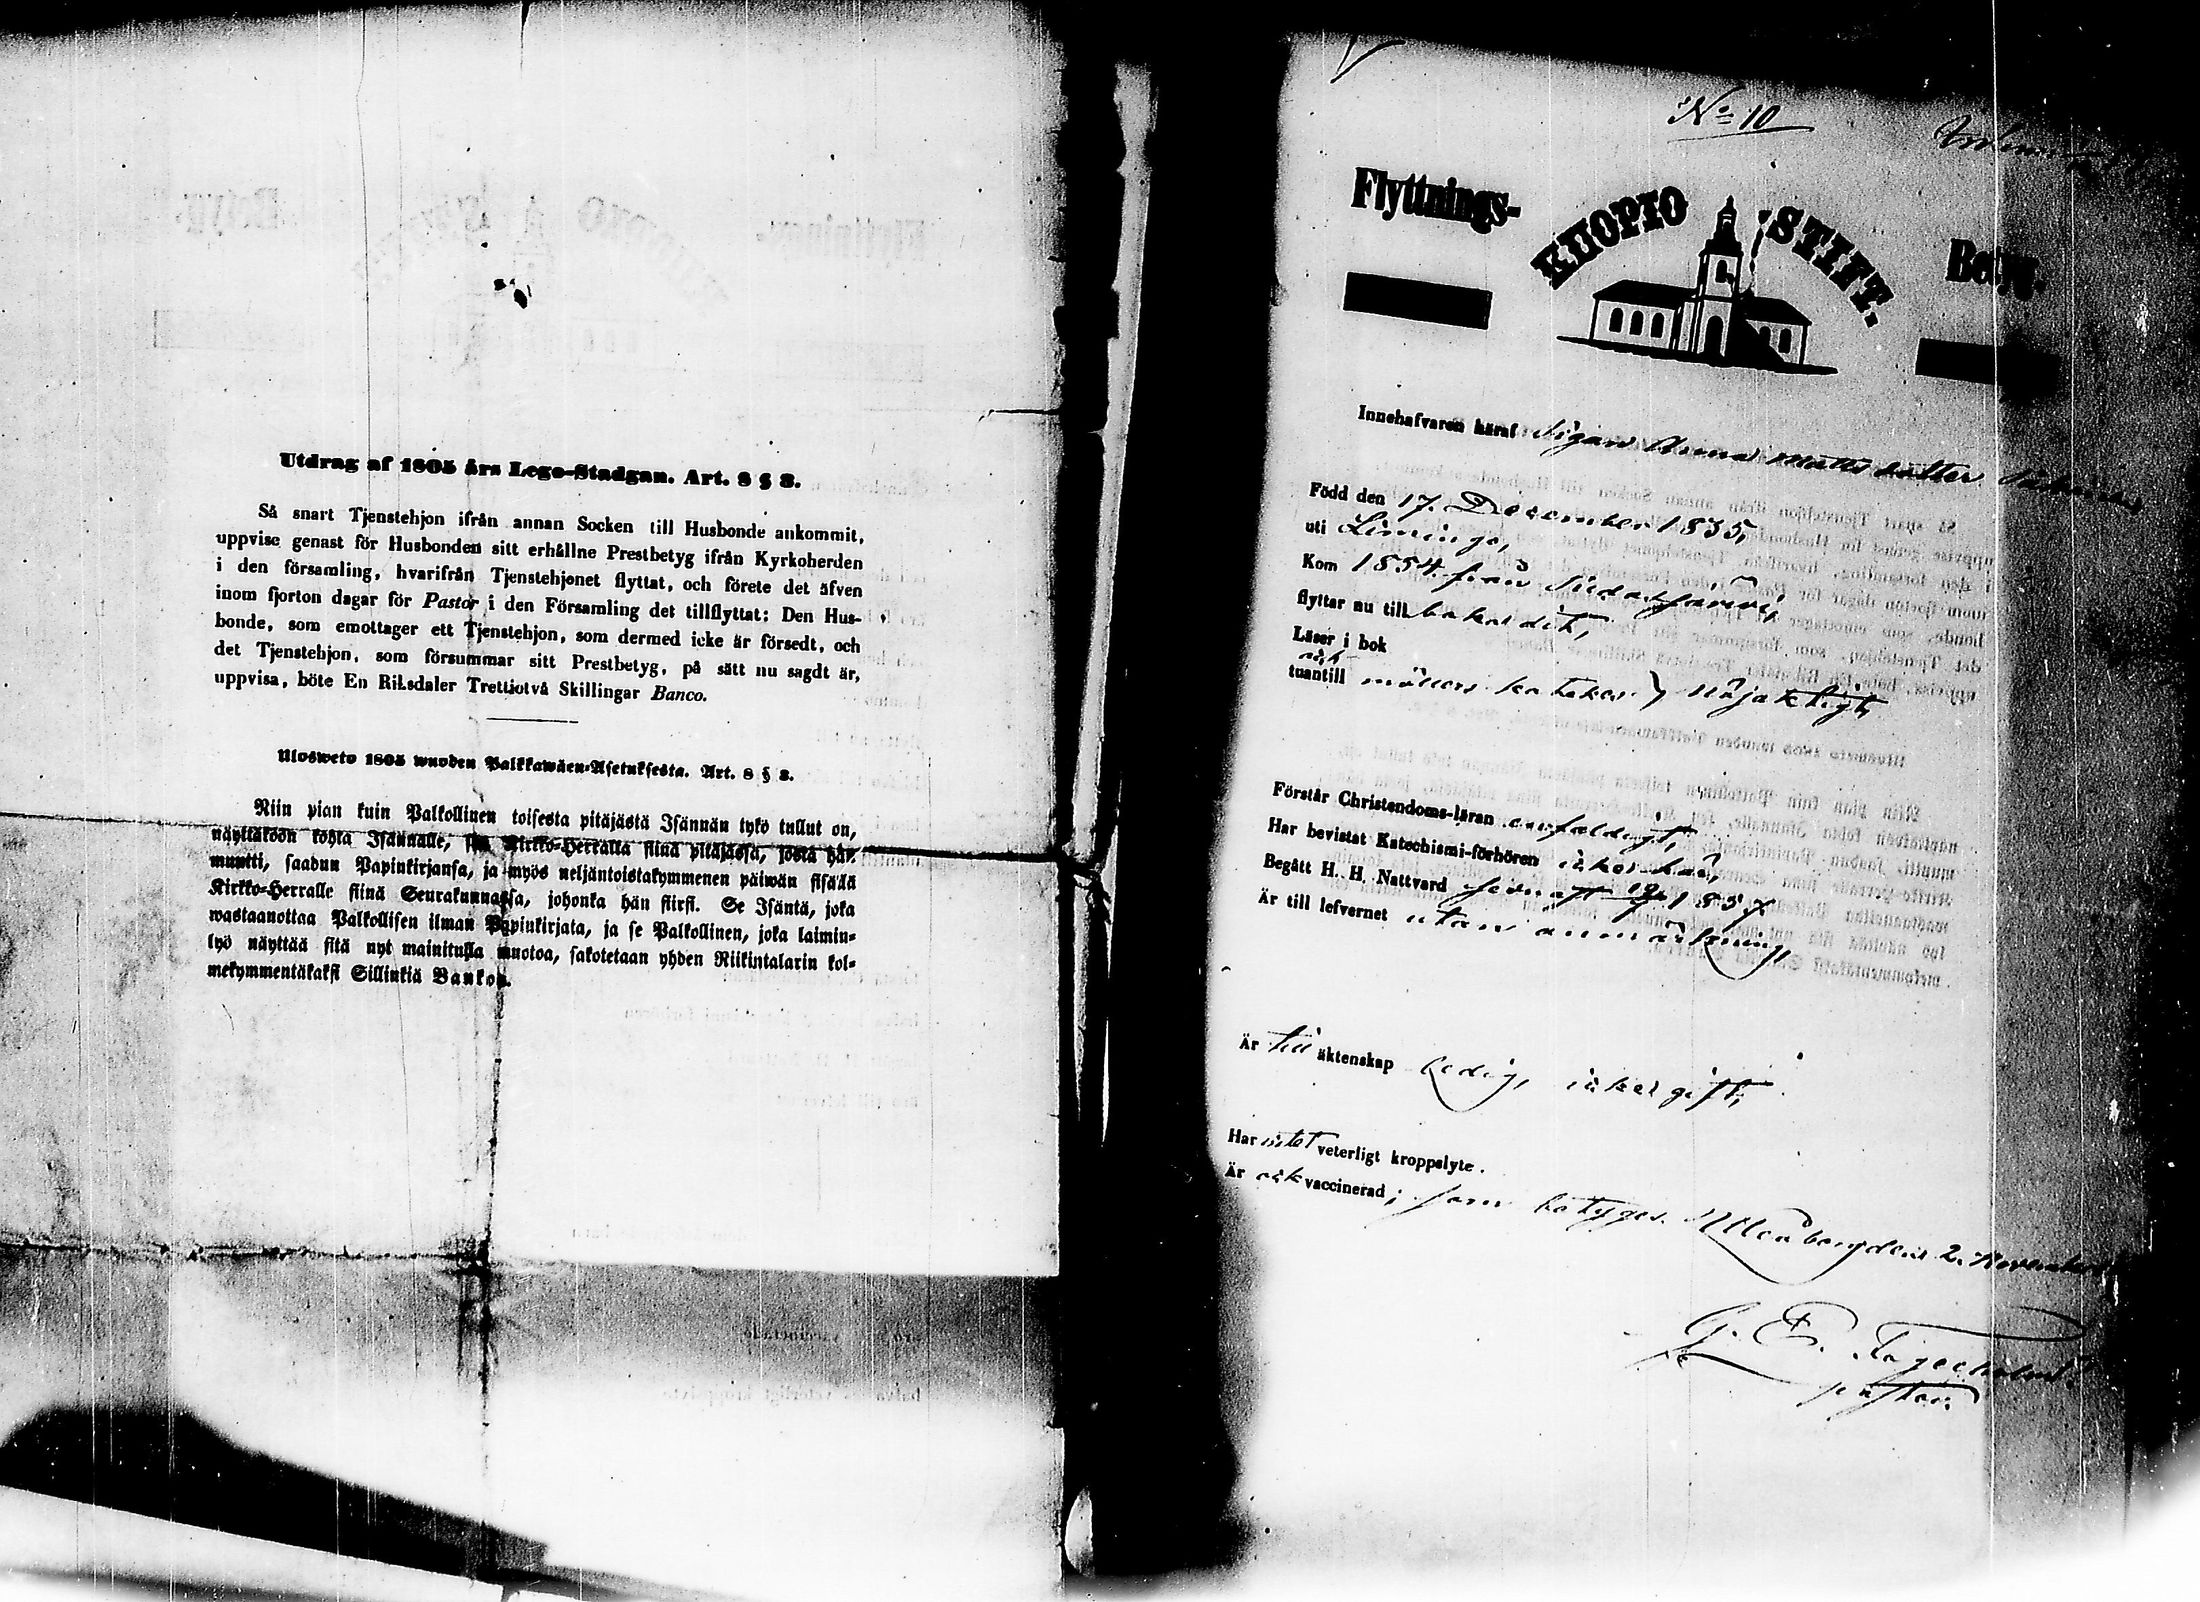 Utdrag af 1805 års Lego-Stadgan. Art. 8 § 3.
Så snart Tjenstehjon ifrån annan Socken till Husbonde ankommit,
uppvise genast för Husbonden sitt erhållne Prestbetyg ifrån Kyrkoherden
i den församling, hvarifrån Tjenstehjonet flyttat, och förete det äfven
inom fjorton dagar för Pastor i den Församling det tillflyttat: Den Hus-
bonde, som emottager ett Tjenstehjon, som dermed icke är försedt, och
det Tjenstehjon, som försummar sitt Prestbetyg, på sätt nu sagdt är,
uppvisa, böte En Riksdaler Trettiotvå Skillingar Banco.
Ulosweto 1805 wuoden Palkkawäen-Asetuksesta. Art. 8 § 3.
Niin pian kuin Palkollinen toisesta pitäjästä Isännän tykö tullut on,
näyttäköön kohta Isännälle, sen Kirkko-Herralta siinä pitäjässä, josta hän
muutti, saadun Papinkirjansa, ja myös neljäntoistakymmenen päiwän sisällä
Kirkko-Herralle siinä Seurakunnassa, johonka hän siirsi. Se Isäntä, joka
wastaanottaa Palkollisen ilman Papinkirjata, ja se Palkollinen, joka laimin-
lyö näyttää sitä nyt mainitulla muotoa, sakotetaan yhden Riikintalarin kol-
mekymmentäkaksi Sillinkiä Bankon.
No 10
Flyttnings- KUOPIO STIFT. Betyg.
Innehafvaren häraf Pigan Anna Matts dotter
Född den 17. December 1835,
uti Limingo,
Kom 1854 från Pudasjärvi,
flyttar nu till baka dit,
Läser i bok
och
utantill möllers kateches } Nöjaktigt,
Förstår Christendoms-läran enfaldigt,
Har bevistat Katechismi-förhören icke här,
Begått H. H. Nattvard 1857.
Är till lefvernet utan anmärkning,
Är till äktenskap ledig, icke gift,
Har intet veterligt kroppslyte.
Är ock vaccinerad; som betyges. Uleåborg den 2. November
G. E.
pastor.